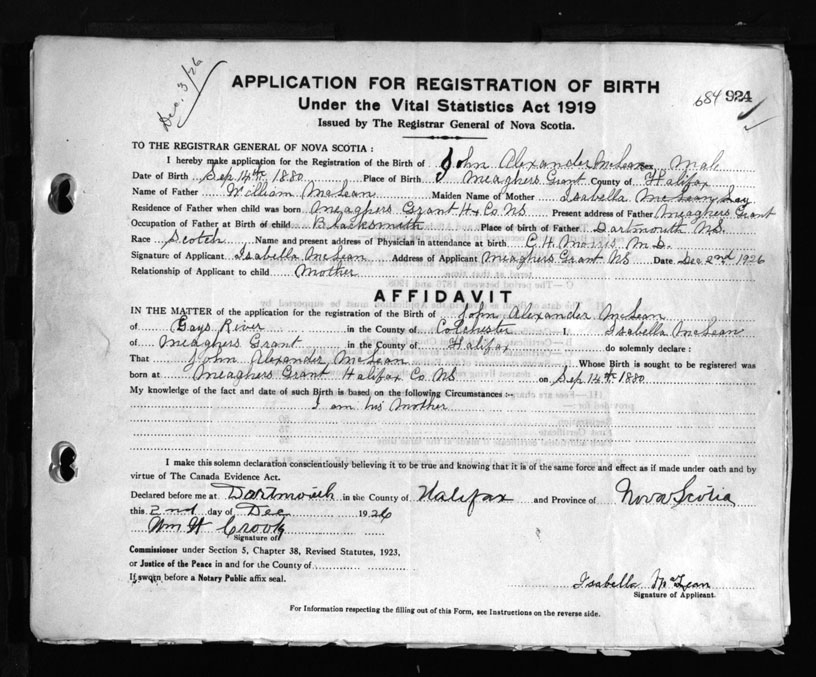 Dec. 3/26
APPLICATION FOR REGISTRATION OF BIRTH
684 924
Under the Vital Statistics Act 1919
Issued by The Registrar General of Nova Scotia.
TO THE REGISTRAR GENERAL OF NOVA SCOTIA :
I hereby make application for the Registration of the Birth of John Alexander McLean Sex Male
Date of Birth Sep 14th 1880 Place of Birth Meaghers Grant County of Halifax
Name of Father William McLean Maiden Name of Mother Isabella McLean Lay
Residence of Father when child was born Meaghers Grant Hx Co NS Present address of Father Meaghers Grant
Occupation of Father at Birth of child Blacksmith Place of birth of Father Dartmouth NS.
Race Scotch Name and present address of Physician in attendance at birth C.H. Morris M.D.
Signature of Applicant Isabella McLean Address of Applicant Meaghers Grant NS Date Dec 2nd 1926
Relationship of Applicant to child Mother
AFFIDAVIT
IN THE MATTER of the application for the registration of the Birth of John Alexander McLean
of Gays River in the County of Colchester I, Isabella McLean
of Meaghers Grant in the County of Halifax do solemnly declare :
That John Alexander McLean Whose Birth is sought to be registered was
born at Meaghers Grant Halifax Co NS on Sep 14th 1880
My knowledge of the fact and date of such Birth is based on the following Circumstances :-
I am his Mother
I make this solemn declaration conscientiously believing it to be true and knowing that it is of the same force and effect as if made under oath and by
virtue of The Canada Evidence Act.
Declared before me at Dartmouth in the County of Halifax and Province of Nova Scotia
this 2nd day of Dec 1926
Wm H Crook
Signature of
Commissioner under Section 5, Chapter 38, Revised Statutes, 1923,
or Justice of the Peace in and for the County of
If sworn before a Notary Public affix seal.
Isabella McLean
Signature of Applicant.
For Information respecting the filling out of this Form, see Instructions on the reverse side.